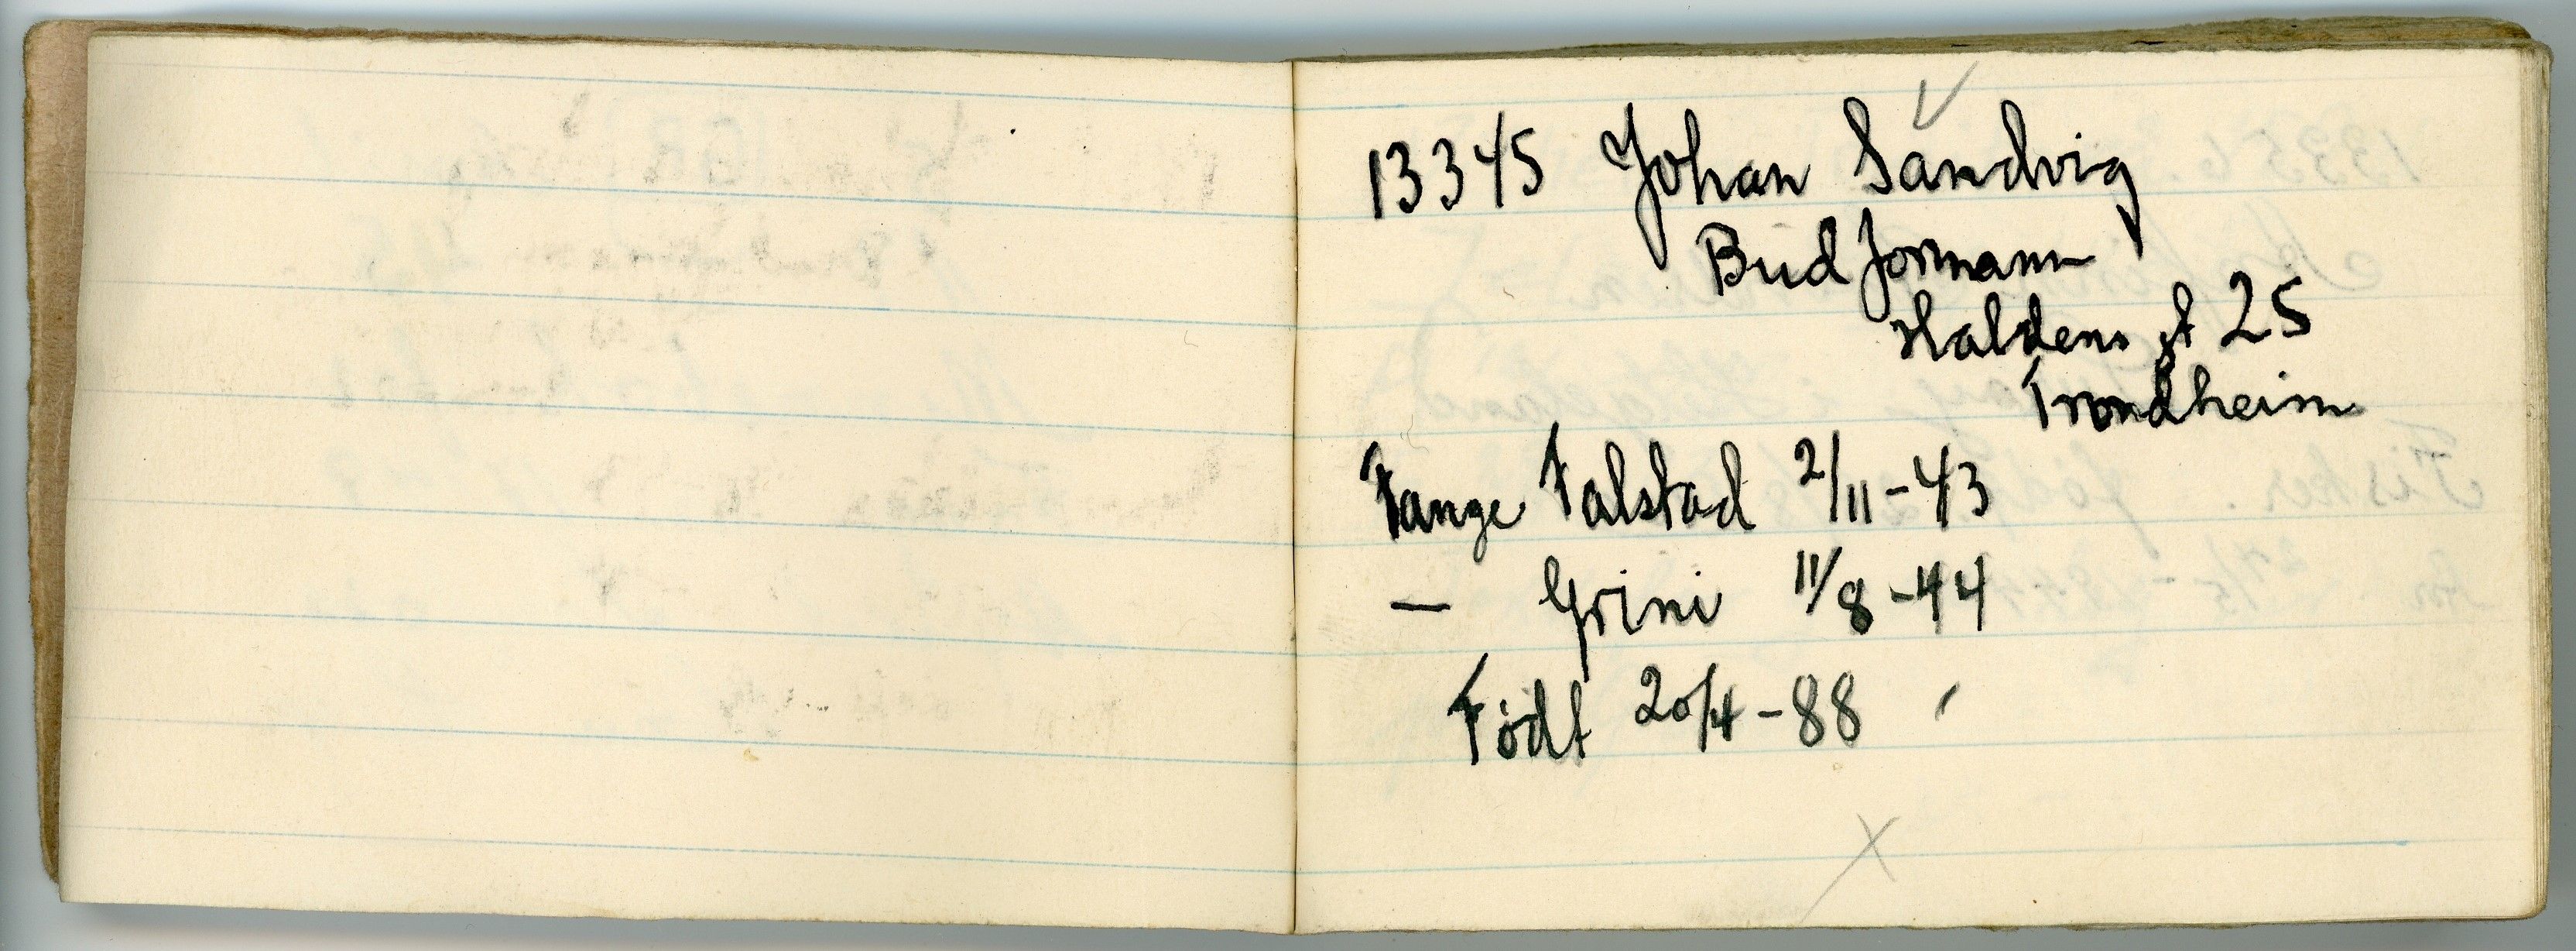 13345 Johan Sandvig
Bud formann
Haldens gt 25
Trondheim
Fange Falstad 2/11-43
— Grini 11/8-44
Født 20/4-88